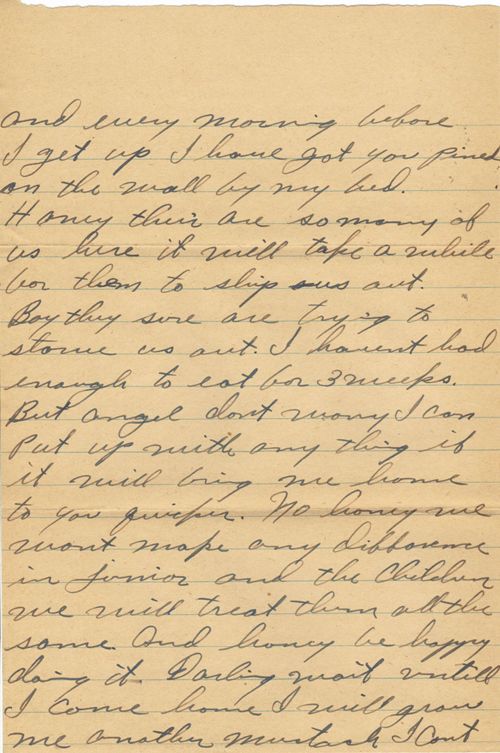 and every morning before
I get up I have got you pined
on the wall by my bed.
Honey their are so many of
us here it will take a while
for them to ship us out.
Boy they sure are trying to
starve us out. I havent had
enough to eat for 3 weeks.
But angel dont worry I can
Put up with any thing if
it will bring me home
to you quicker. No honey we
wont make any difference
in Junior and the children
we will treat them all the
same. And honey be happy
doing it. Darling wait untill
I come home I will grow
me another mustash I cant